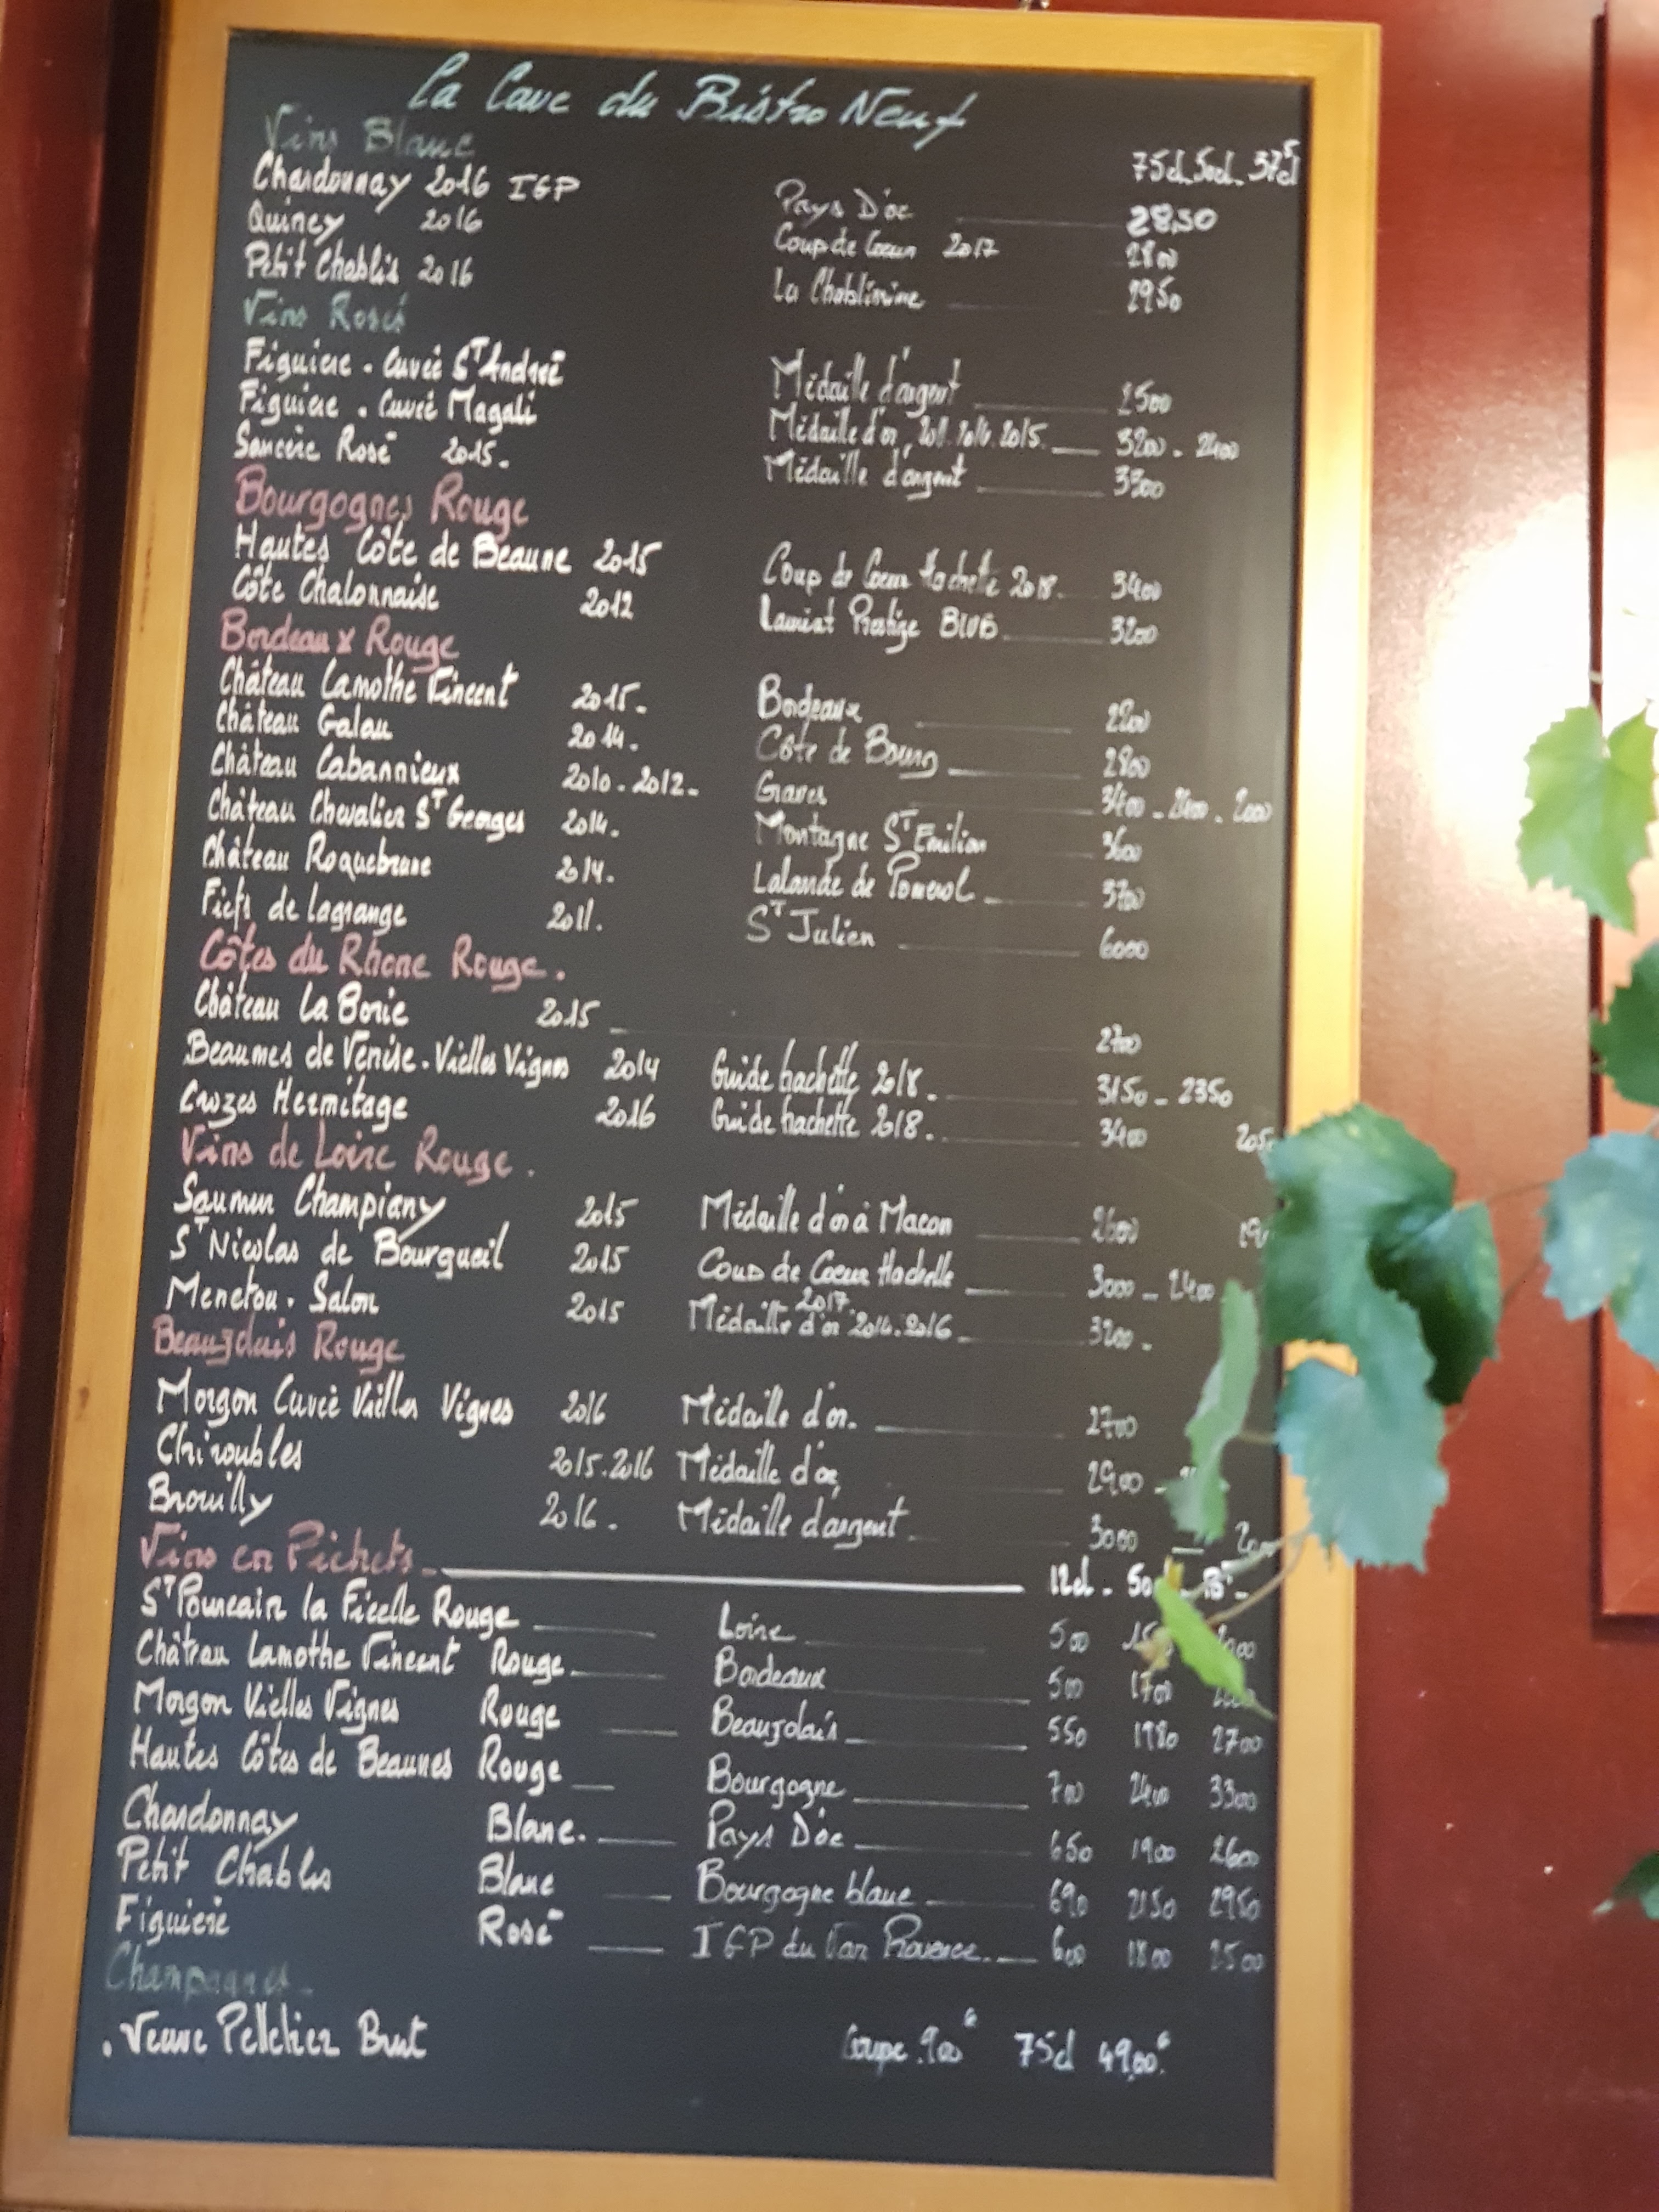 La Cave du Bistro Neuf
Vins Blanc 75cl. 50cl. 37,5cl
Chardonnay 2016 IGP Pays D'oc 28,50
Quincy 2016 Coup de Coeur 2017 2800
Petit Chablis 2016 La Chablisienne 2950
Vins Rosé
Figuiere. Cuveé St André Médaille d'argent 2500
Figuiere. Cuveé Magali Médaille d'or, 2015 3200 - 2400
Sancerre Rosé 2015. Médaille d'argent 3300
Bourgognes Rouge
Hautes Côte de Beaune 2015 Coup de Coeur Hachette 2018. 3400
Côte Chalonnaise 2012 Lauriat Prestige BIVB 3200
Bordeaux Rouge
Château Lamothe Vincent 2015. Bordeaux
Château Galau 2014. Côte de Bourg 2900
Château Cabannieux 2010 - 2012 - Graves 3400 - 2400 - 2000
Château Chevalier St Georges 2014. Montagne St Emilion 3600
Château Roquebrune 2014. Lalande de Pomerol 3700
Fiefs de lagrange 2011. St Julien 6000
Côtes du Rhone Rouge.
Château La Borie 2015 2700
Beaumes de Venise. Vielles Vignes 2014 Guide hachette 2018. 3150 - 2350
Crozes Hermitage 2016 Guide hachette 2018. 3400
Vins de Loire Rouge.
Saumur Champigny 2015 Médaille d'or à Macon 2600
St Nicolas de Bourgueil 2015 Coup de Coeur Hachette 2017. 3000 - 2400
Menetou. Salon 2015 Médaille d'or 2014. 2016 3200 -
Beaujolais Rouge
Morgon Cuveé Vielles Vignes 2016 Médaille d'or. 2700
Chiroubles 2015. 2016 Médaille d'or 2900
Brouilly 2016. Médaille d'argent 3000
Vins en Pichets 12cl.
St Pourcain la Ficelle Rouge Loire 500
Château Lamothe Vincent Rouge Bordeaux 500 1700
Morgon Vielles Vignes Rouge Beaujolais 550 1980 2700
Hautes Côtes de Beaunes Rouge Bourgogne 700 2400 3300
Chardonnay Blanc. Pays D'oc 650 1900 2600
Petit Chablis Blanc Bourgogne blanc 690 2150 2950
Figuiere Rosé IGP du Var Provence. 600 1800 2500
Champagnes
. Veuve Pelletier Brut Coupe. 900€ 75cl 49,00€